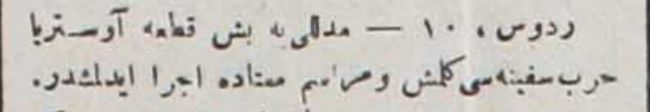 ردوس، ۱۰ — مدللی‌یه بش قطعه آوستریا
حرب سفینه‌سی کلمش ومراسم معتاده اجرا ایدلمشدر.